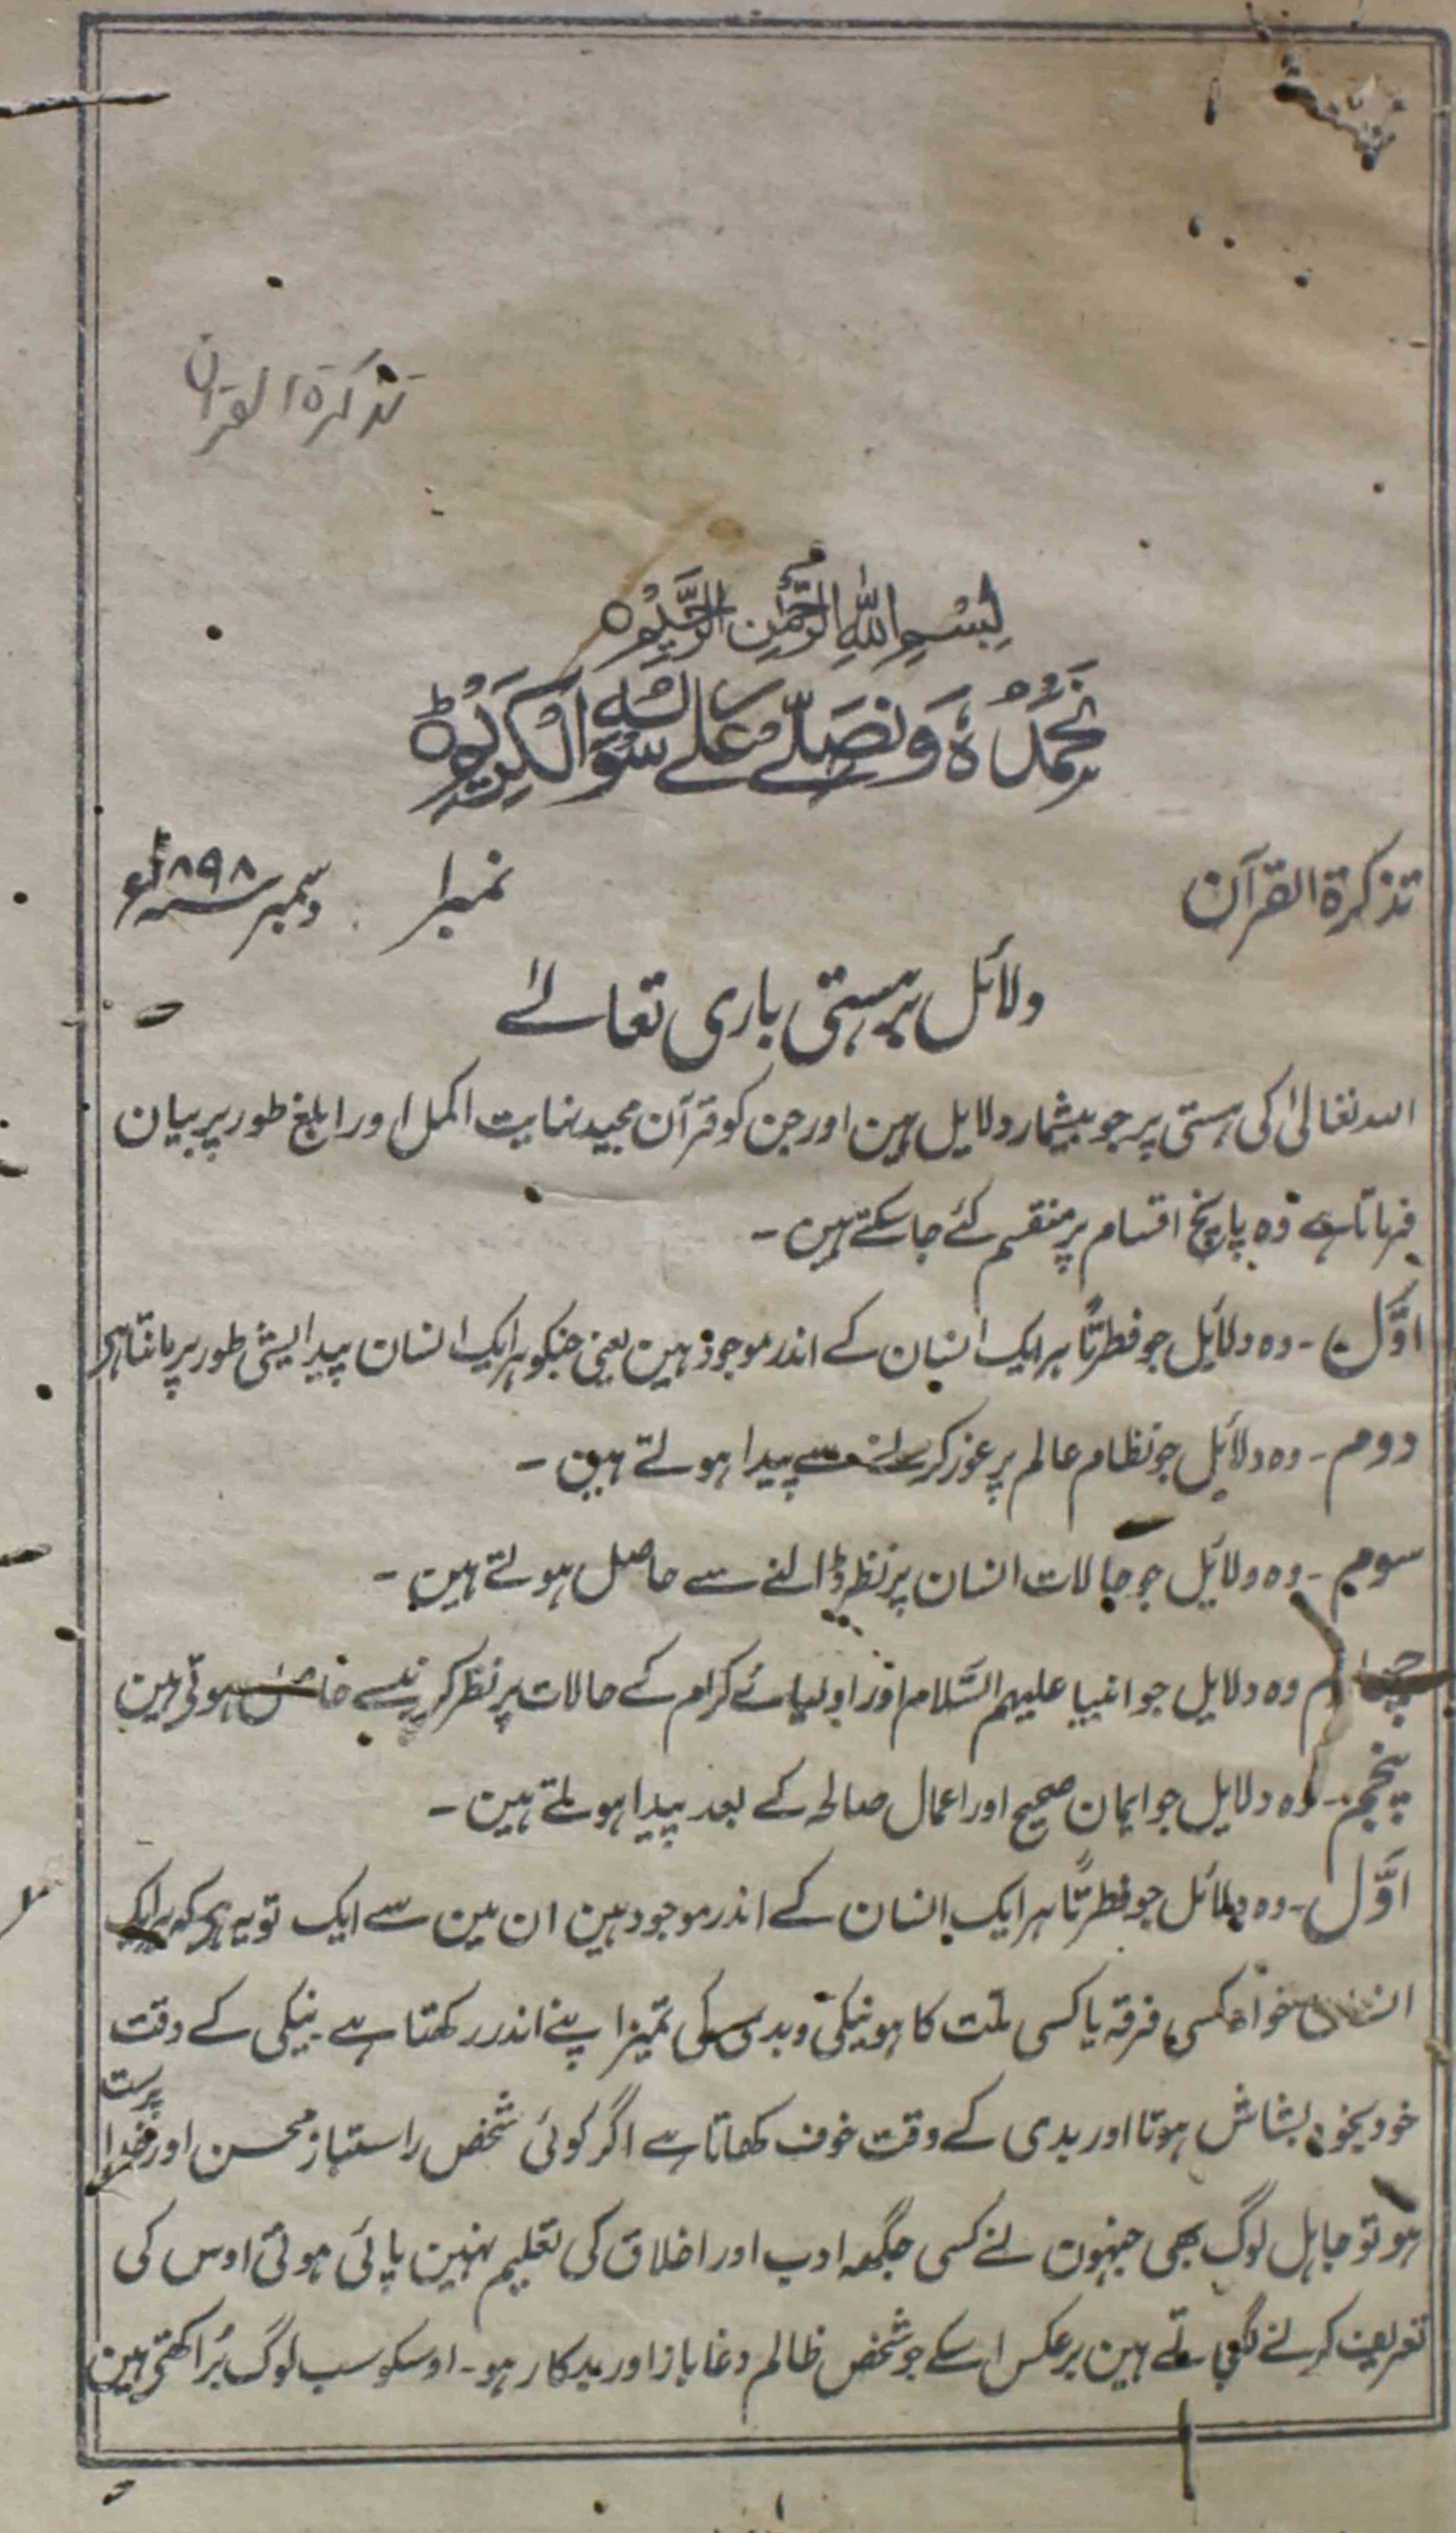 تذکرة القرآن
بِسْمِ اللّٰهِ الرَّحْمٰنِ الرَّحِیْمِ
نَحْمَدُہٗ وَنُصَلِّیْ عَلٰے رَسُوْلِہِ الْکَرِیْمِ ط
تذکرة القرآن نمبر ۱ دسمبر ۱۸۹۸ء
دلائل بر ہستی باری تعالےٰ
اللہ تعالیٰ کی ہستی پر جو بیشمار دلایل ہین اور جن کو قرآن مجید نہایت اکمل اور ابلغ طور پر بیان
فرماتا ہے وہ پانچ اقسام پر منقسم کئے جا سکتے ہین ۔
اوّل ۔ وہ دلایل جو فطرتًا ہر ایک انسان کے اندر موجود ہین یعنی جنکو ہر ایک انسان پیدایشی طور پر مانتا ہے
دوم ۔ وہ دلایل جو نظام عالم پر غور کرنے سے پیدا ہوتے ہین ۔
سوم ۔ وہ دلایل جو حالات انسان پر نظر ڈالنے سے حاصل ہوتے ہین ۔
چہارم وہ دلایل جو انبیا علیہم السّلام اور اولیائے کرام کے حالات پر نظر کرنیسے حاصل ہوتی ہین
پنجم ۔ وہ دلایل جو ایمان صحیح اور اعمال صالحہ کے بعد پیدا ہوتے ہین ۔
اوّل ۔ وہ دلائل جو فطرتًا ہر ایک انسان کے اندر موجود ہین ان مین سے ایک تو یہ ہے کہ ہر ایک
انسان خواہ کسی فرقہ یا کسی ملت کا ہو نیکی و بدی کی تمیز اپنے اندر رکھتا ہے نیکی کے وقت
خود بخود بشاش ہوتا اور بدی کے وقت خوف کھاتا ہے اگر کوئی شخص راستباز محسن اور خدا پرست
ہو تو جاہل لوگ بھی جنہون نے کسی جگہ ادب اور اخلاق کی تعلیم نہین پائی ہوتی اوس کی
تعریف کرنے لگ جاتے ہین برعکس اسکے جو شخص ظالم دغا باز اور بدکار ہو ۔ اوسکو سب لوگ بُرا کہتے ہین